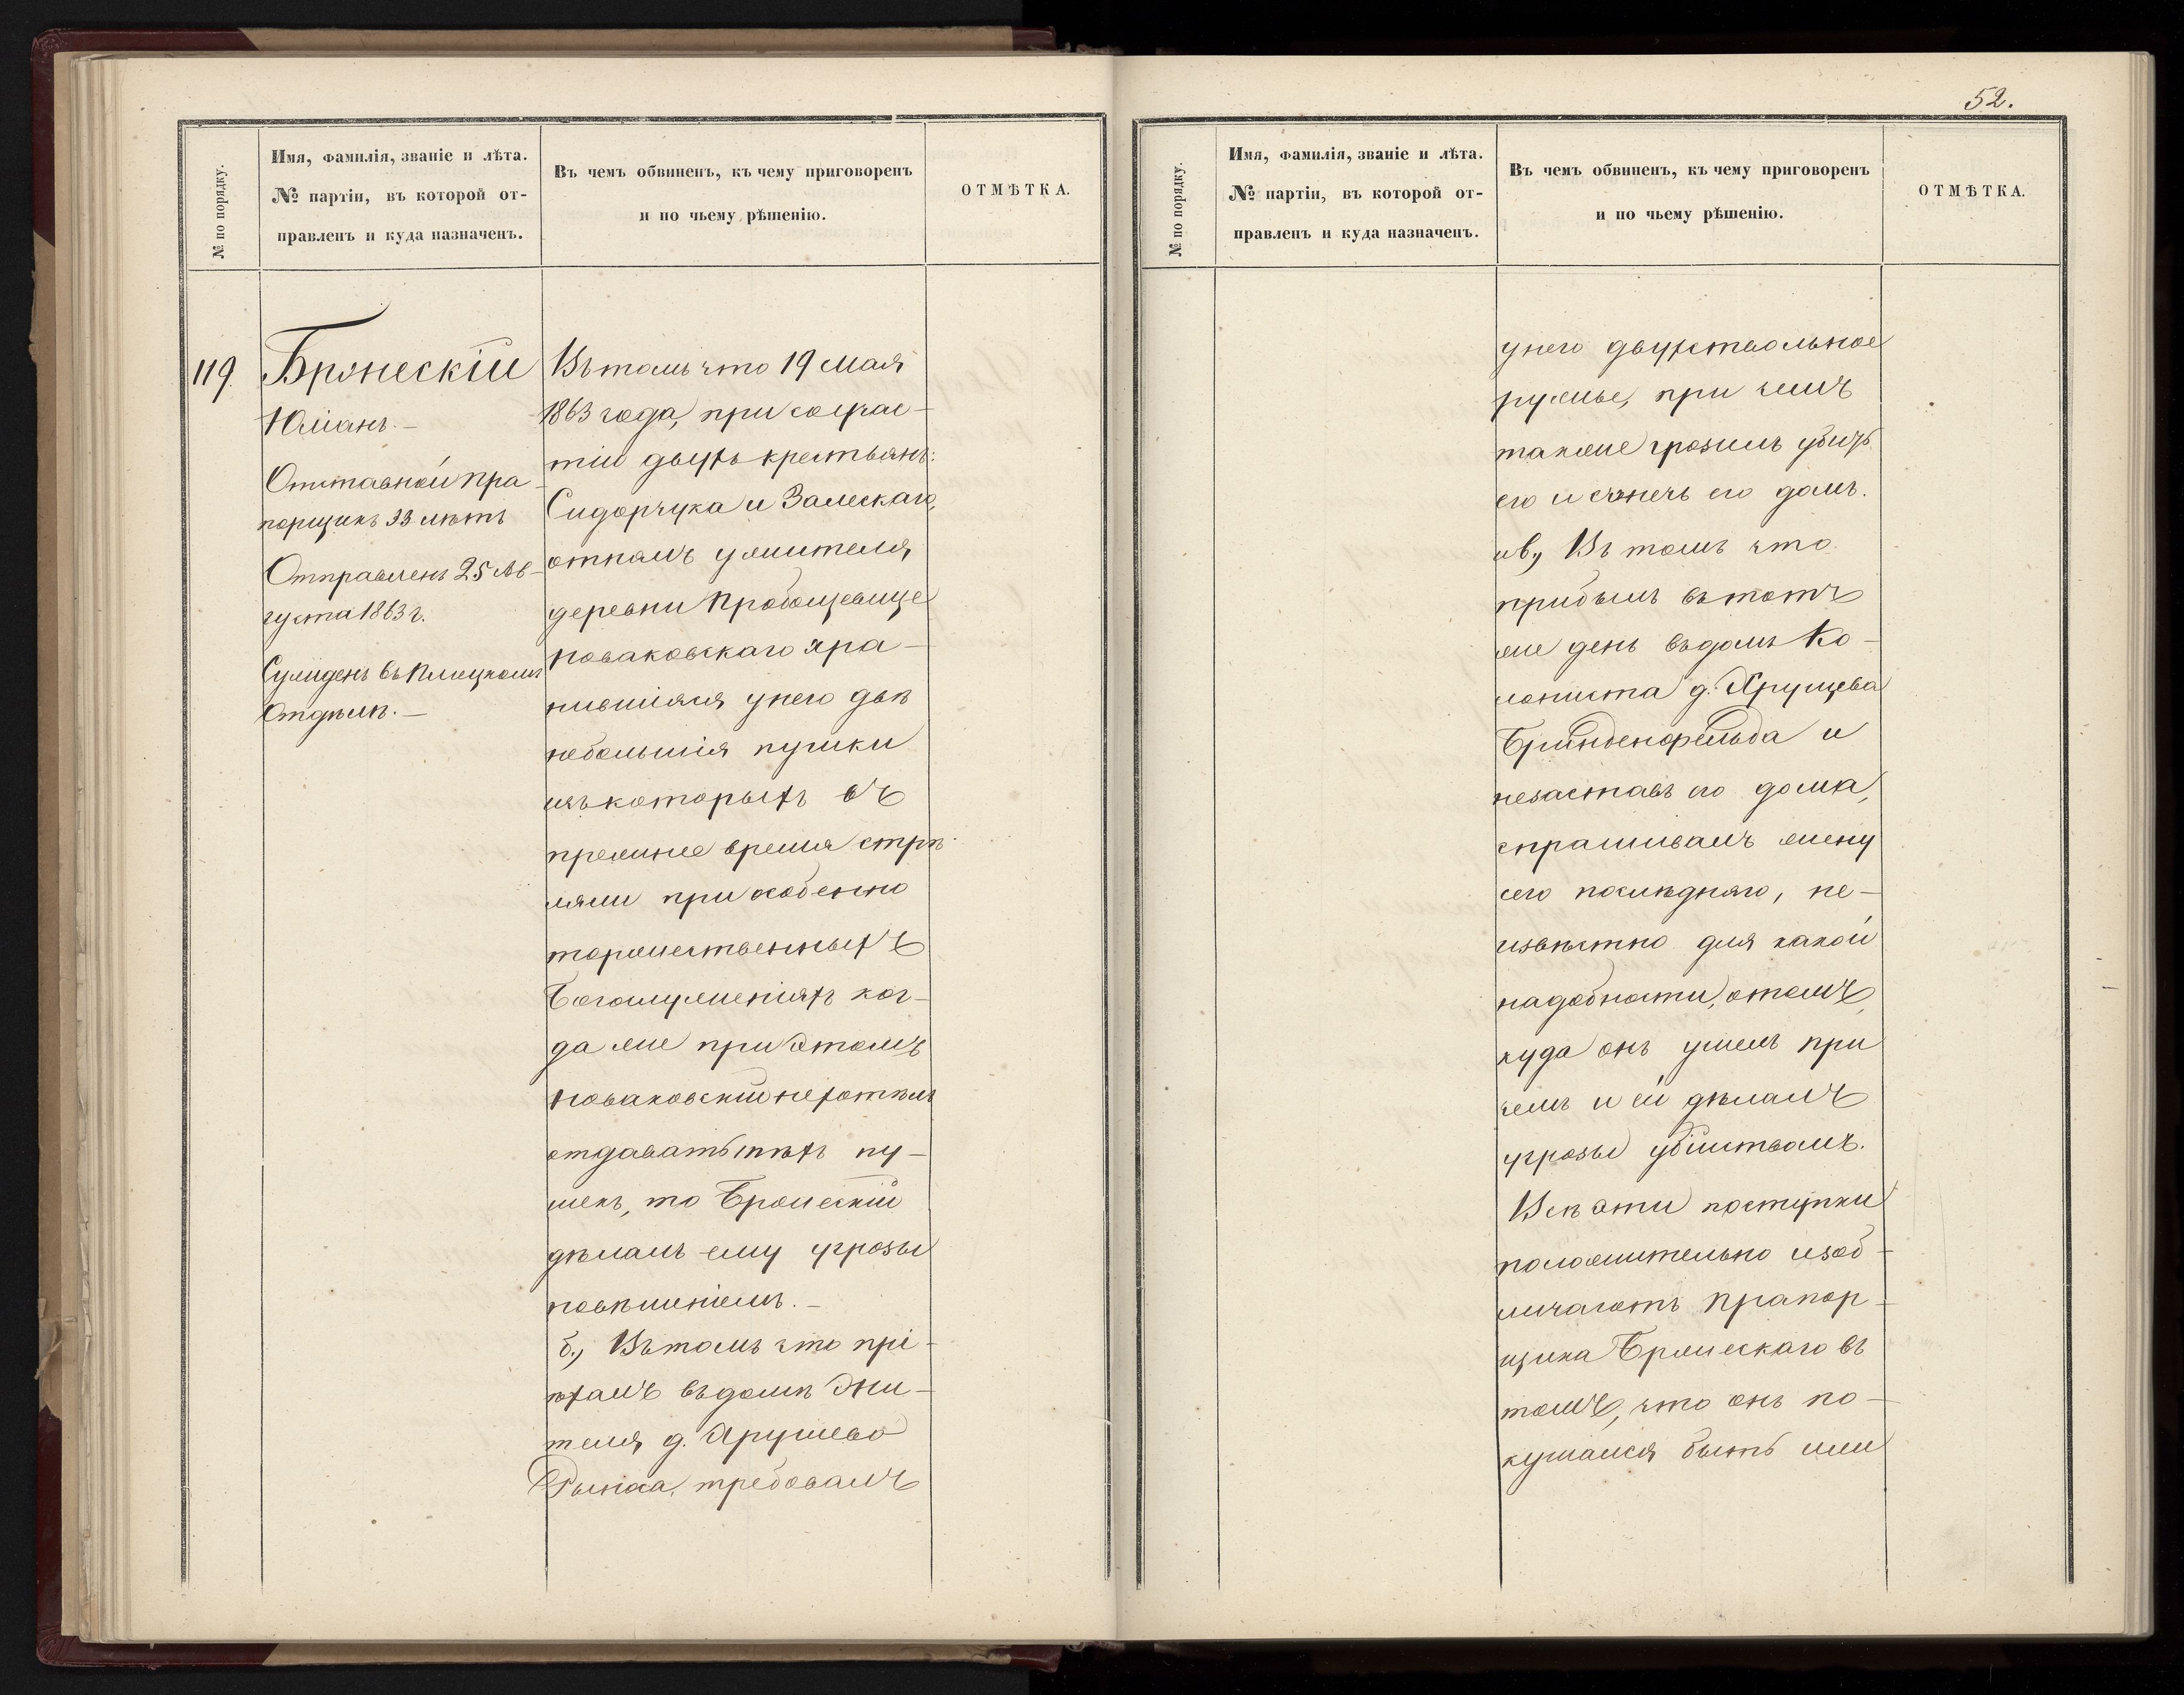 № по порядку.
Имя, фамилія, званіе и лѣта.
№ партіи, въ которой от-
правленъ и куда назначенъ.
Въ чемъ обвиненъ, къ чему приговоренъ
и по чьему рѣшенію.
ОТМѢТКА.
119.
Бронескій
Юліанъ.—
Отставной пра-
порщикъ 33 лѣтъ
Отправленъ 25 Ав-
густа 1863 г.
Сужденъ въ Плоцкомъ
Отдѣлѣ.—
Въ томъ что 19 Мая
1863 года, при соучас-
тіи двухъ крестьянъ:
Сидорчука и Залескаго,
отнялъ у жителя
деревни Пробощевице
Новаковскаго хра-
нившіяся у него двѣ
небольшія пушки
изъ которыхъ въ
прежнее время стрѣ-
ляли при особенно
торжественныхъ
Богомуленіяхъ ког-
да же при этомъ
Новаковскій не хотѣлъ
отдавать тѣхъ пу-
шекъ, то Бронескій
дѣлалъ ему угрозы
повѣшеніемъ.—
б., Въ томъ что прі-
ѣхалъ въ домъ жи-
теля д. Хрущево
требовалъ
52.
№ по порядку.
Имя, фамилія, званіе и лѣта.
№ партіи, въ которой от-
правленъ и куда назначенъ.
Въ чемъ обвиненъ, къ чему приговоренъ
и по чьему рѣшенію.
ОТМѢТКА.
у него двухствольное
ружье, при чемъ
также грозилъ убить
его и сжечь его домъ.
и в., Въ томъ что
прибылъ въ тотъ
же день въ домъ Ко-
лониста д. Хрущева
и
незаставъ его дома,
спрашивалъ жену
сего послѣдняго, не-
извѣстно для какой
надобности, о томъ,
куда онъ ушелъ при
чемъ и ей дѣлалъ
угрозы убійствомъ.
Всѣ эти поступки
положительно изоб-
личаютъ Прапор-
щика Бронескаго въ
томъ, что онъ по-
кушался быть или